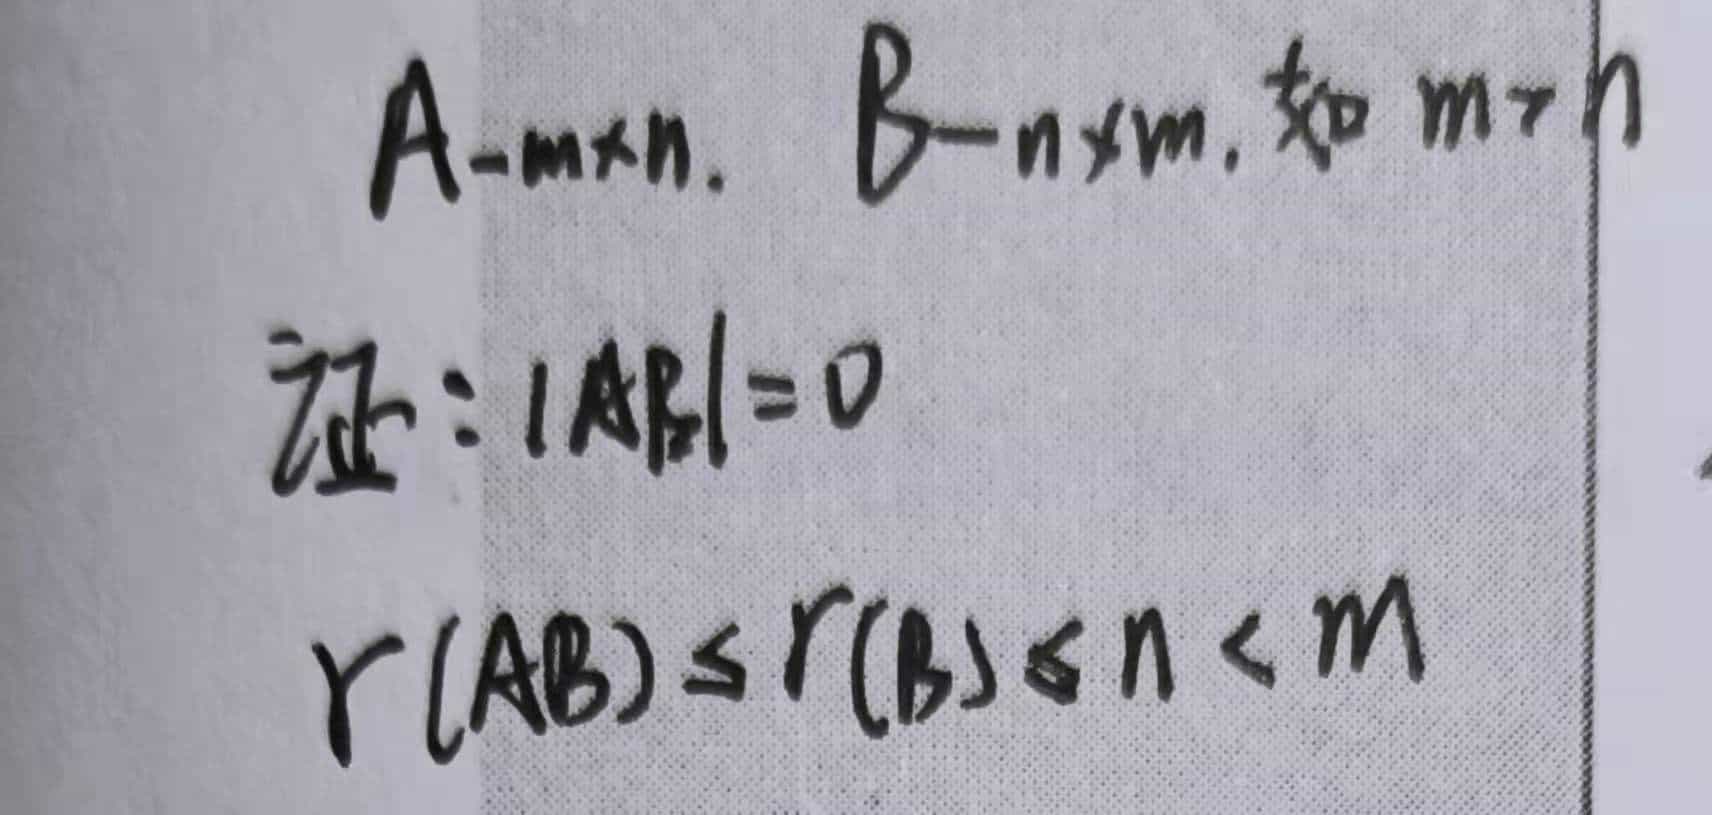 A-m×n. B-n×m. 如 m>n
证: |AB|=0
r(AB)≤r(B)≤n<m